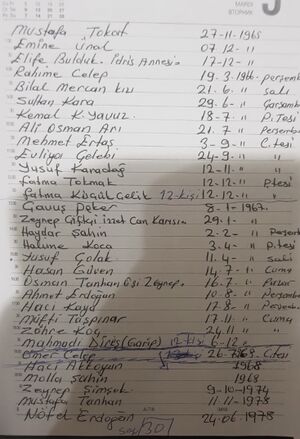 MARDİ
ВТОРНИК
Mustafa Tokat 27-11-1965
Emine ünal 07.12- "
Elife Bulduk. İdris Annesi 17-12- "
Rahime Celep 19.3.1966. perşemb
Bilal Mercan kızı 21.6. " salı
Sultan Kara 29.6- " Çarşamb
Kemal K.Yavuz 18.7- " P.Tesi
Ali Osman Arı 21.7 " Perşemb
Mehmet Ertaş 3-9- " C.tesi
Evliya Çelebi 24-9- "
Yusuf Karadağ 12-11- "
Fatma Tokmak 12-12- " P.tesi
Fatma Çelik 12-kişi 12-12- "
Gavuş Peker 8-1-1967.
Zeynep Çiftçi İzzet Can Karısı 29.1- "
Haydar Şahin 2-2- " Perşemb
Halime Koca 3-4- " P.tesi
Yusuf Çolak 11.4- " salı
Hasan Güven 14.7- " Cuma
Osman Tanhan Eşi Zeynep 16.7- " Pazar
Ahmet Erdoğan 10-8- " Perşembe
Hacı Kaya 17-8 " Perşemb
Müfti Taşpınar 17.11- " Cuma
Zöhre Koç 24.11 " "
mahmudi Direş (Garip) 12-kişi 6-12- "
Ömer Celep 26-7-1968- C.tesi
Hacı Akkoyun 1968
Molla Şahin 1968
Zeynep Şimşek 9-10-1974
mustafa Tanhan 11-11-1978
Nöfel Erdoğan 24.06-1978
30